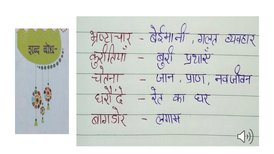 शब्द बोध-
भ्रष्टाचार - बेईमानी, गलत व्यवहार
कुरीतियाँ - बुरी प्रथाएँ
चेतना - जान, प्राण, नवजीवन
घरौंदे - रेत का घर
बागडोर - लगाम